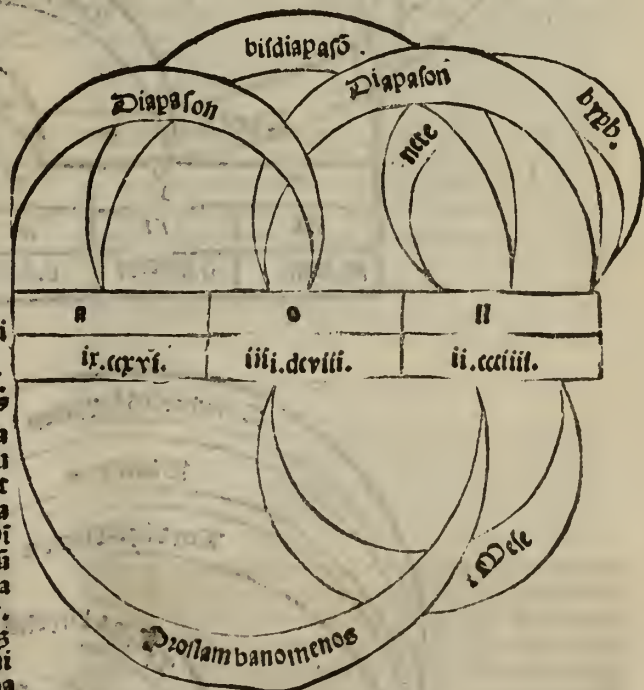 bisdiapasō.
Diapason
Diapason
nete
hyph.
a o ll
ix.ccxvi. iiii.dcviii. ii.ccciiii.
Mese
Proslambanomenos